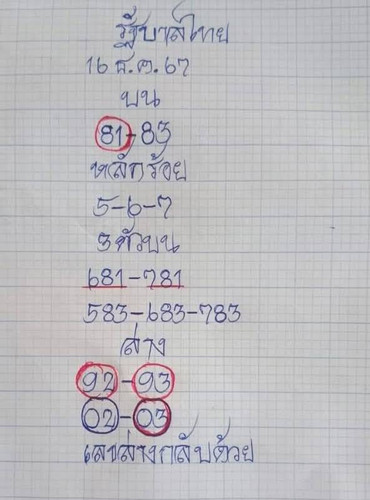 รัฐบาลไทย
16 ธ.ค.67
บน
81-83
หลักร้อย
5-6-7
3 ตัวบน
681-781
583-683-783
ล่าง
92-93
02-03
เลขล่างกลับด้วย